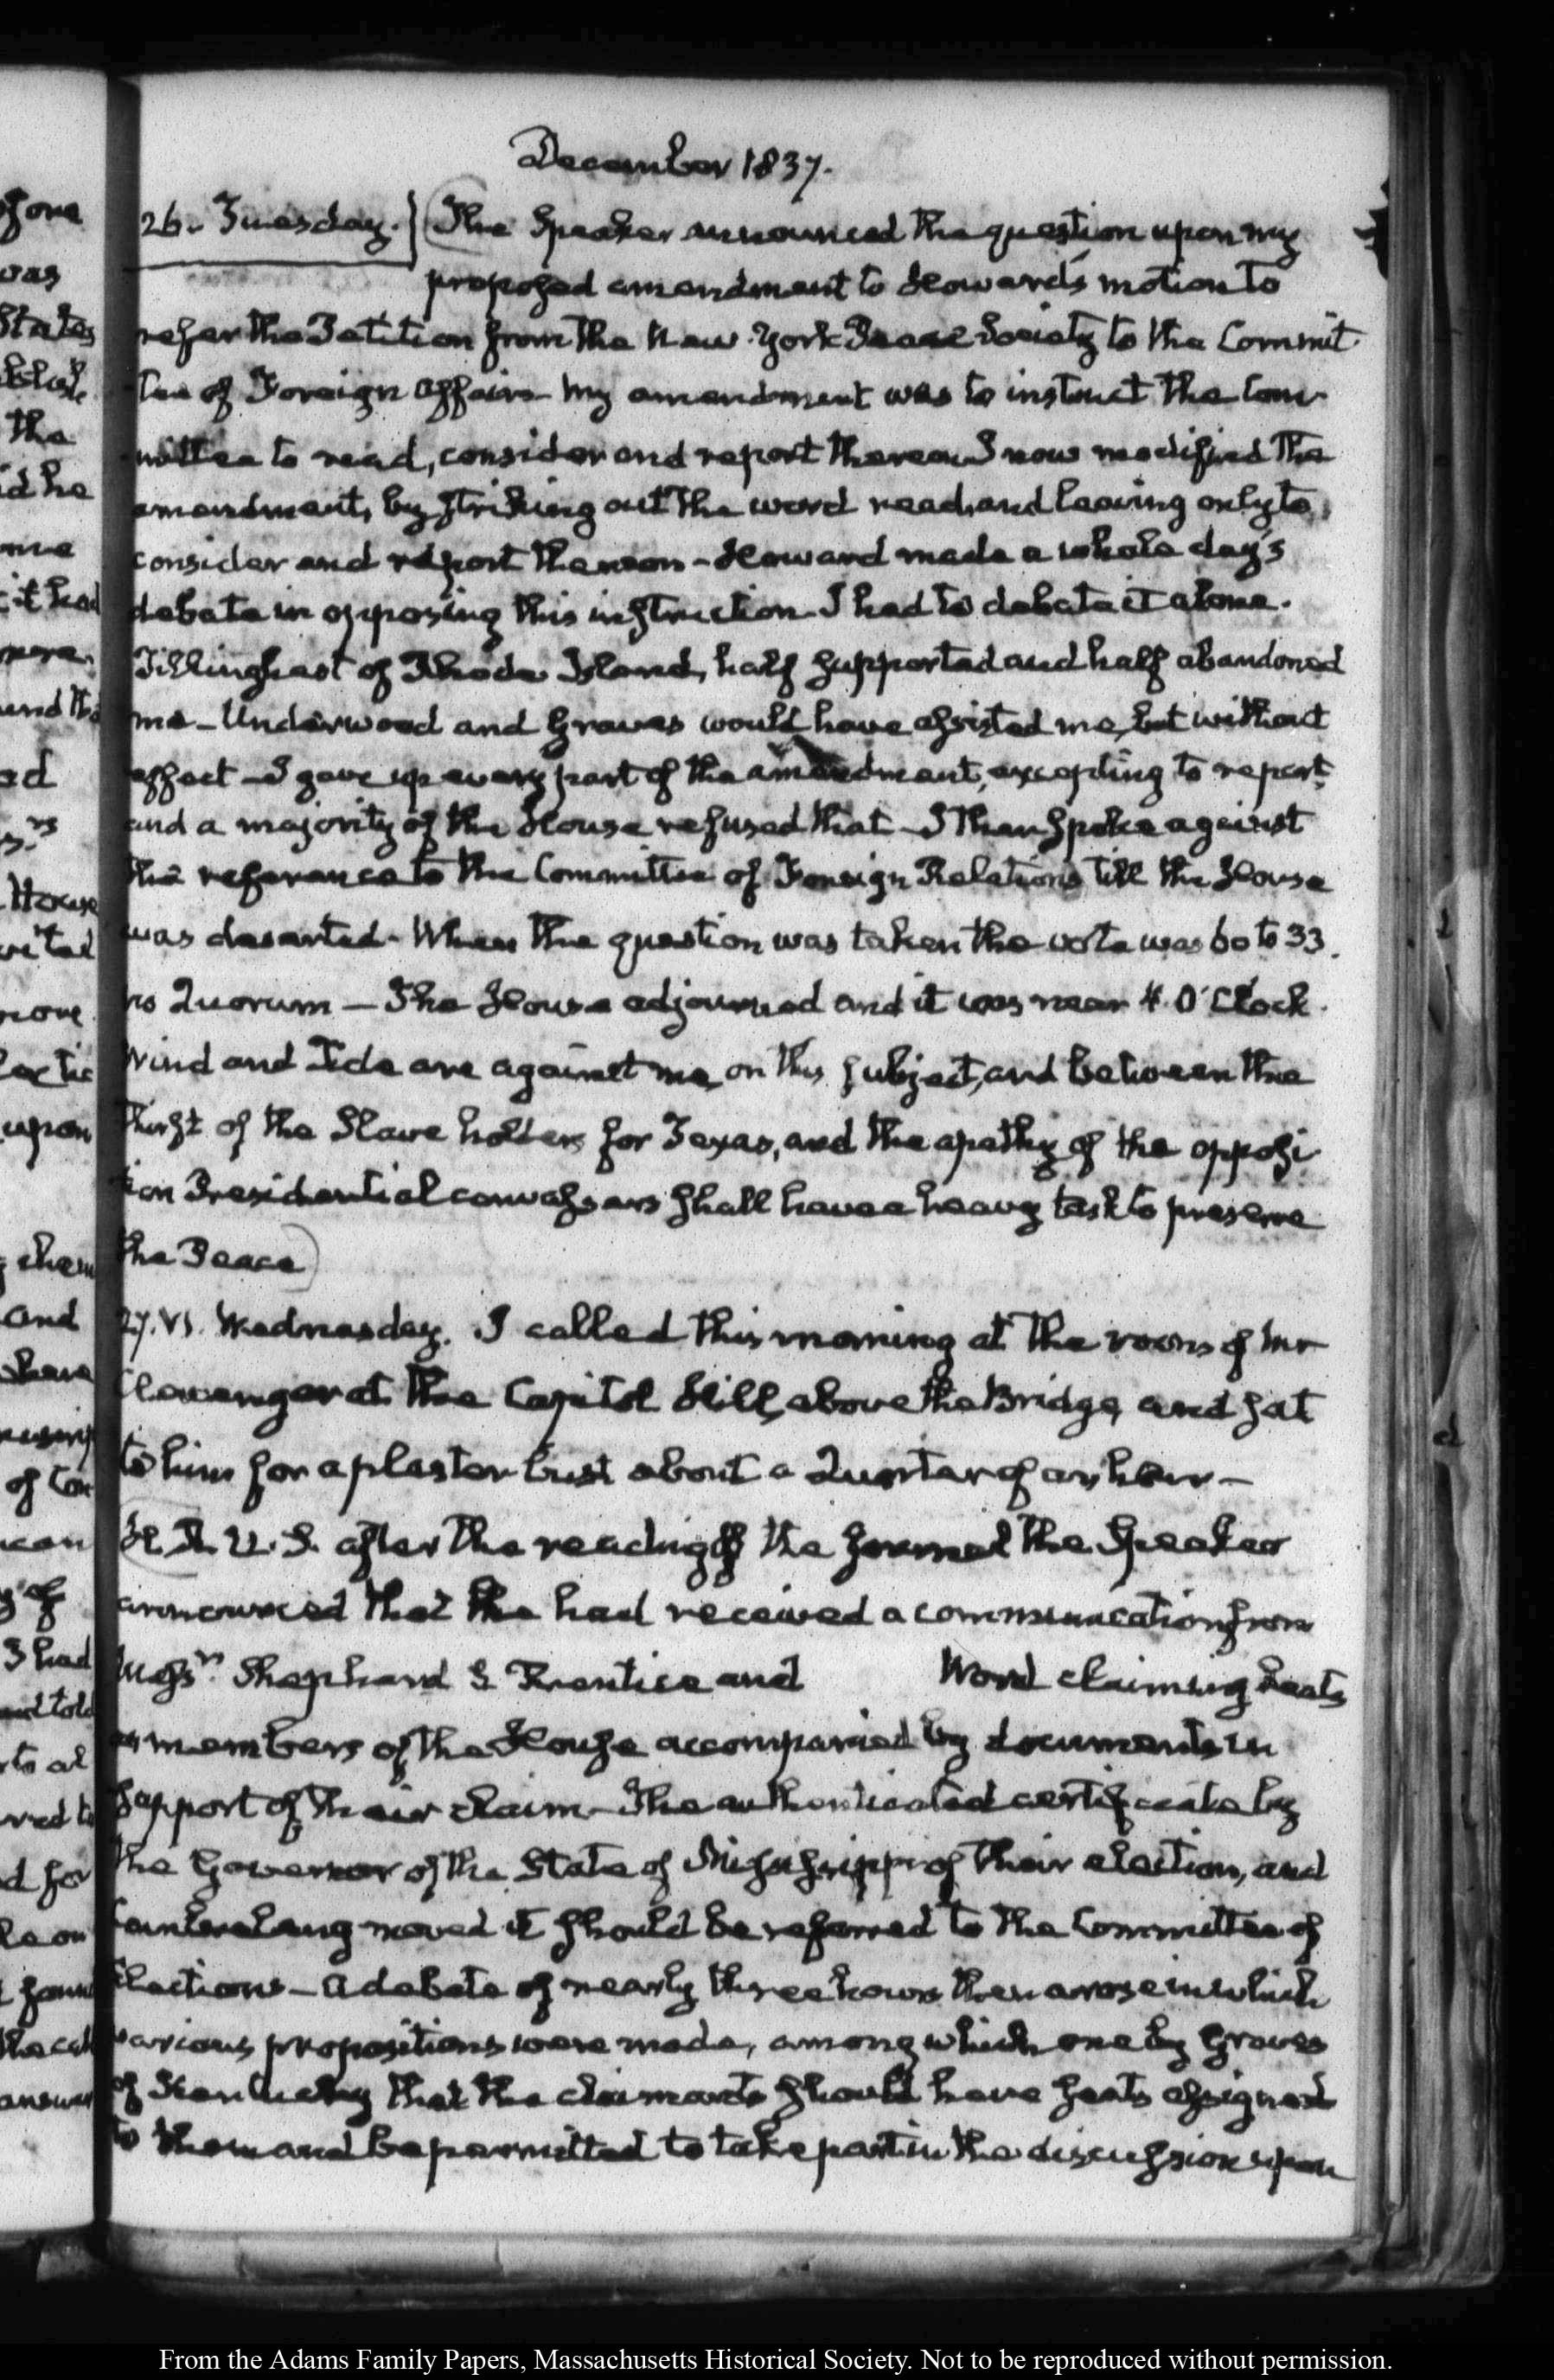 December 1837.
26. Tuesday. The Speaker announced the question upon my
proposed amendment to Howard's motion to
refer the Petition from the New-York Peace Society to the Commit
tee of Foreign Affairs— My amendment was to instruct the Com-
mittee to read, consider and report thereon I now modified the
amendment, by striking out the word read, and leaving only to
consider and report thereon - Howard made a whole day's
debate in opposing this instruction— I had to debate it alone.
Tillinghast of Rhode Island, half supported and half abandoned
me— Underwood and Graves would have assisted me, but without
effect— I gave up every part of the amendment, excepting to report,
and a majority of the House refused that— I then spoke against
the reference to the Committee of Foreign Relations till the House
was deserted. When the question was taken the vote was 60 to 33.
no Quorum — The House adjourned and it was near 4. O'Clock.
Wind and Tide are against me, on this subject, and between the
thirst of the Slave holders for Texas, and the apathy of the opposi
tion Presidential canvassers shall have a heavy task to preserve
the Peace
27. VI. Wednesday. I called this morning at the room of Mr
Clevenger at the Capitol Hill, above the Bridge, and sat
to him for a plaster bust about a Quarter of an hour—
H. R. U. S. after the reading of the Journal the Speaker
announced that he had received a communication from
Messrs. Shephard S Prentice and Word claiming Seats
as members of the House accompanied by documents in
support of their claim— The authenticated certificate by
the Governor of the State of Mississippi of their election, and
Cambreleng moved it should be referred to the Committee of
Elections— A debate of nearly three hours then arose in which
various propositions were made, among which one by Graves
of Kentucky that the claimants should have seats assigned
to them and be permitted to take part in the discussion upon
fore
was
States
the
id he
it had
and the
ed
House
more
upon
them
and
have
of
I had
and told
to
From the Adams Family Papers, Massachusetts Historical Society. Not to be reproduced without permission.